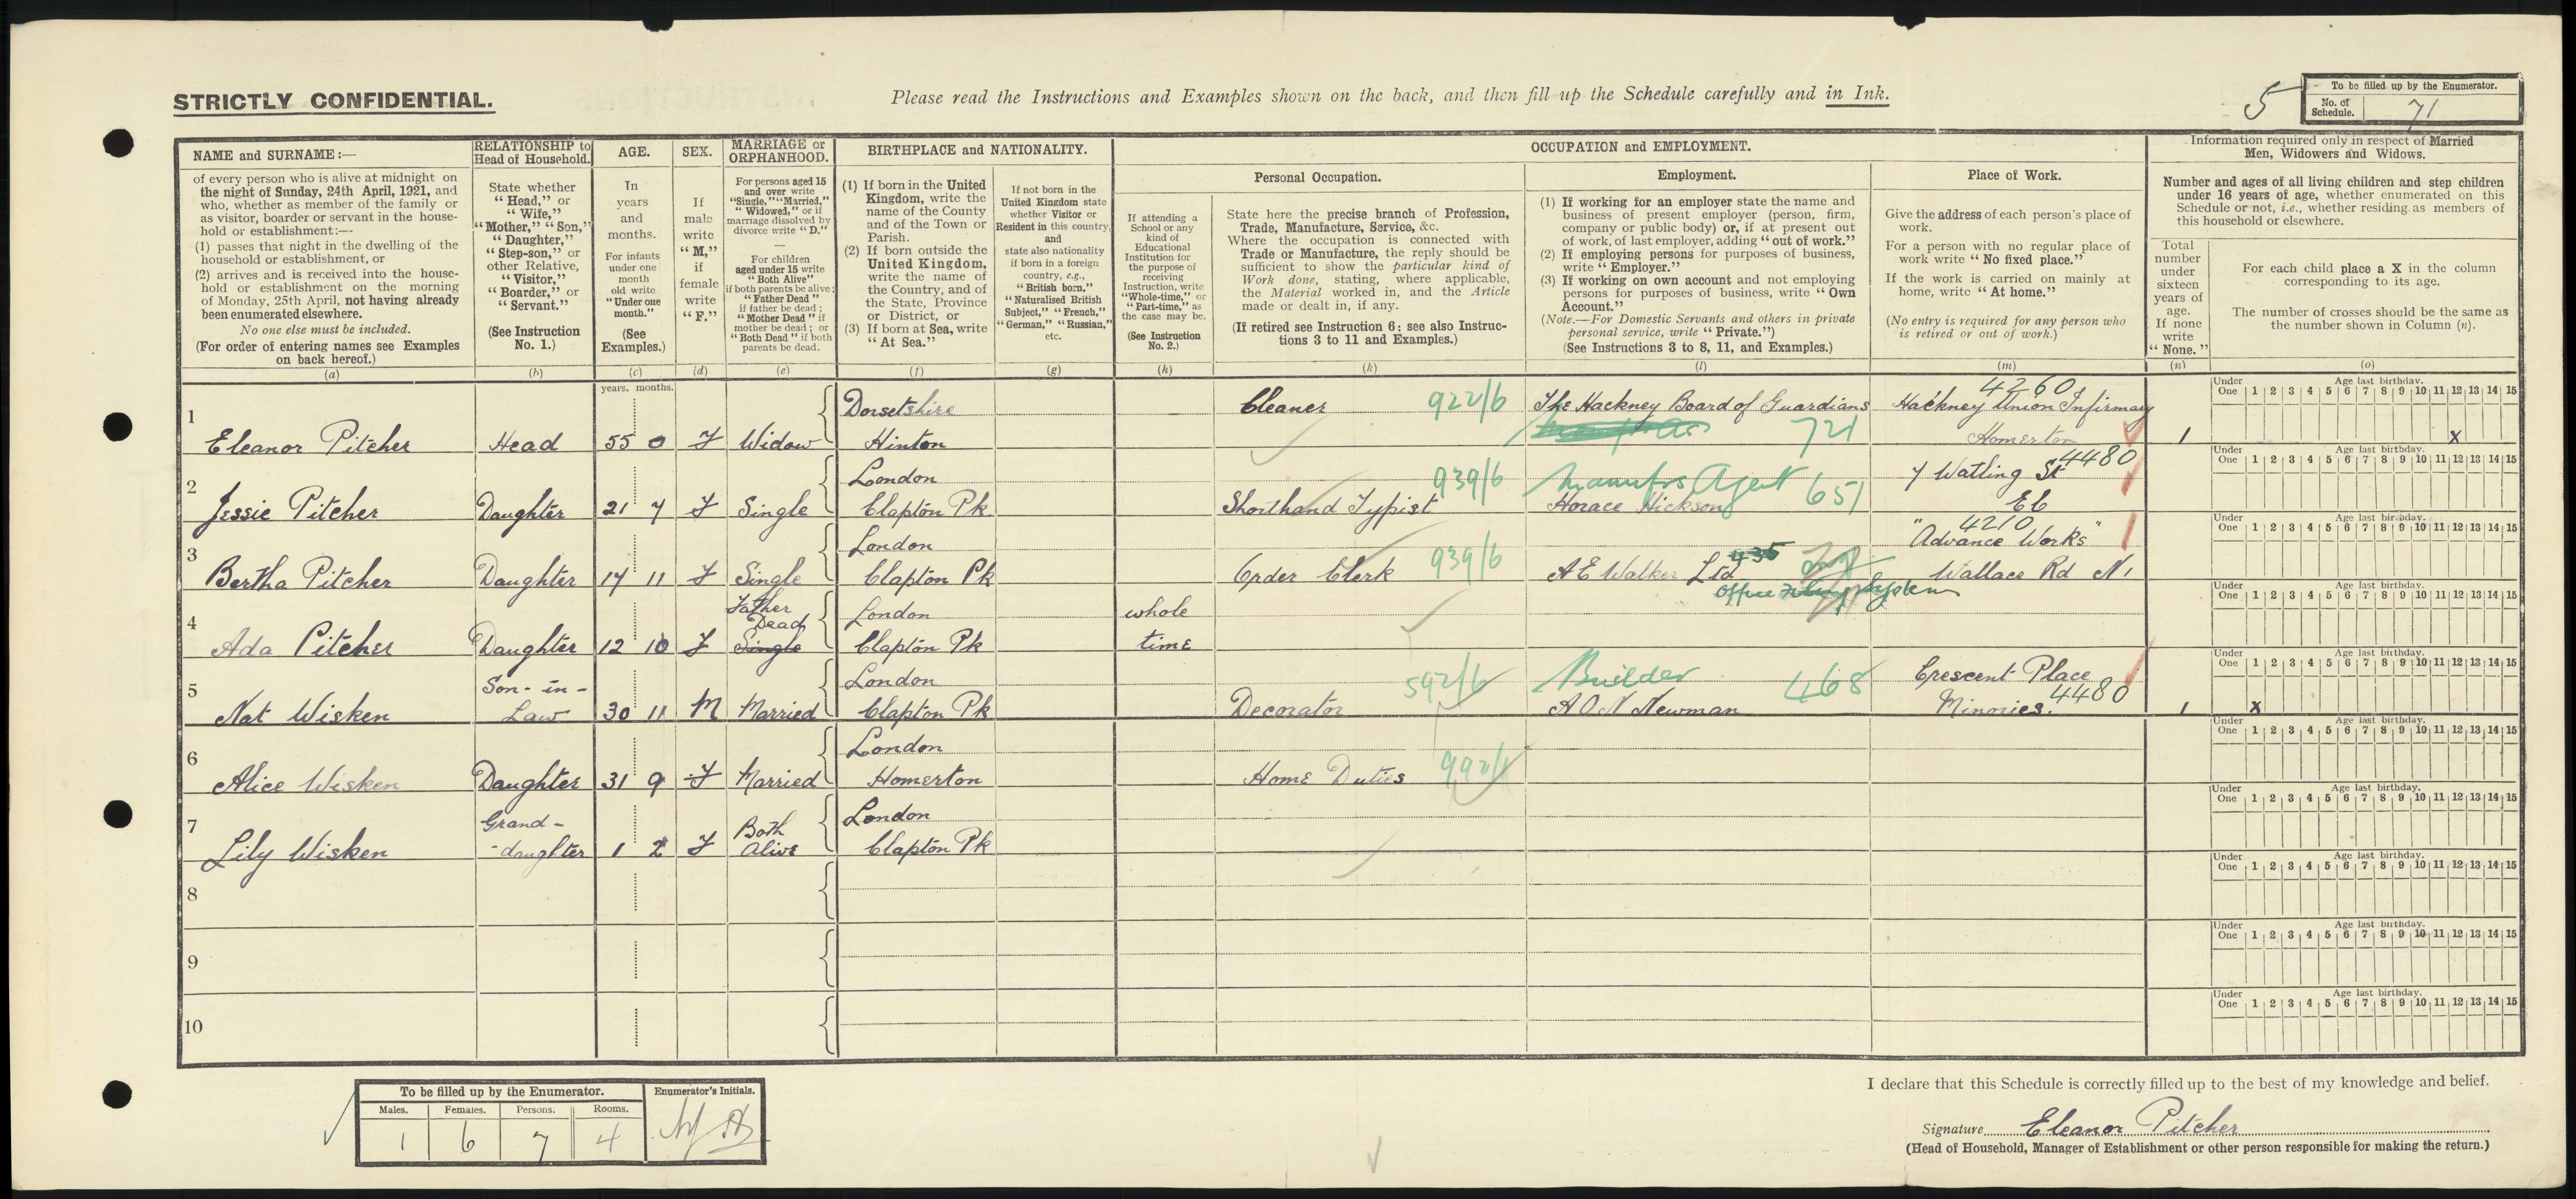 STRICTLY CONFIDENTIAL.
Please read the Instructions and Examples shown on the back, and then fill up the Schedule carefully and in Ink.
5
To be filled up by the Enumerator.
No. of Schedule. 71
NAME and SURNAME:—
of every person who is alive at midnight on
the night of Sunday, 24th April, 1921, and
who, whether as member of the family or
as visitor, boarder or servant in the house-
hold or establishment:—
(1) passes that night in the dwelling of the
household or establishment, or
(2) arrives and is received into the house-
hold or establishment on the morning
of Monday, 25th April, not having already
been enumerated elsewhere.
No one else must be included.
(For order of entering names see Examples
on back hereof.)
(a)
RELATIONSHIP to
Head of Household.
State whether
"Head," or
"Wife,"
"Mother," "Son,"
"Daughter,"
"Step-son," or
other Relative,
"Visitor,"
"Boarder," or
"Servant."
(See Instruction
No. 1.)
(b)
AGE.
In
years
and
months.
For infants
under one
month
old write
"Under one
month."
(See
Examples.)
(c)
SEX.
If
male
write
"M,"
if
female
write
"F."
(d)
MARRIAGE or
ORPHANHOOD.
For persons aged 15
and over write
"Single," "Married,"
"Widowed," or if
marriage dissolved by
divorce write "D."
—
For children
aged under 15 write
"Both Alive"
if both parents be alive;
"Father Dead"
if father be dead;
"Mother Dead" if
mother be dead; or
"Both Dead" if both
parents be dead.
(e)
BIRTHPLACE and NATIONALITY.
(1) If born in the United
Kingdom, write the
name of the County
and of the Town or
Parish.
(2) If born outside the
United Kingdom,
write the name of
the Country, and of
the State, Province
or District, or
(3) If born at Sea, write
"At Sea."
(f)
If not born in the
United Kingdom state
whether Visitor or
Resident in this country,
and
state also nationality
if born in a foreign
country, e.g.,
"British born,"
"Naturalised British
Subject," "French,"
"German," "Russian,"
etc.
(g)
OCCUPATION and EMPLOYMENT.
If attending a
School or any
kind of
Educational
Institution for
the purpose of
receiving
Instruction, write
"Whole-time," or
"Part-time," as
the case may be.
(See Instruction
No. 2.)
(h)
Personal Occupation.
State here the precise branch of Profession,
Trade, Manufacture, Service, &c.
Where the occupation is connected with
Trade or Manufacture, the reply should be
sufficient to show the particular kind of
Work done, stating, where applicable,
the Material worked in, and the Article
made or dealt in, if any.
(If retired see Instruction 6; see also Instruc-
tions 3 to 11 and Examples.)
(k)
Employment.
(1) If working for an employer state the name and
business of present employer (person, firm,
company or public body) or, if at present out
of work, of last employer, adding "out of work."
(2) If employing persons for purposes of business,
write "Employer."
(3) If working on own account and not employing
persons for purposes of business, write "Own
Account."
(Note.—For Domestic Servants and others in private
personal service, write "Private.")
(See Instructions 3 to 8, 11, and Examples.)
(l)
Place of Work.
Give the address of each person's place of
work.
For a person with no regular place of
work write "No fixed place."
If the work is carried on mainly at
home, write "At home."
(No entry is required for any person who
is retired or out of work.)
(m)
Information required only in respect of Married
Men, Widowers and Widows.
Number and ages of all living children and step children
under 16 years of age, whether enumerated on this
Schedule or not, i.e., whether residing as members of
this household or elsewhere.
Total
number
under
sixteen
years of
age.
If none
write
"None."
(n)
For each child place a X in the column
corresponding to its age.
The number of crosses should be the same as
the number shown in Column (n).
(o)
years. months.
Under One Age last birthday. 1 2 3 4 5 6 7 8 9 10 11 12 13 14 15
1 Dorsetshire Cleaner 922/6 The Hackney Board of Guardians 4260 Hackney Union Infirmary
Eleanor Pitcher Head 55 0 F Widow Hinton 721 Homerton 1 x
Under One Age last birthday. 1 2 3 4 5 6 7 8 9 10 11 12 13 14 15
2 London 939/6 Manufrs Agent 651 7 Watling St 4480
Jessie Pitcher Daughter 21 7 F Single Clapton Pk Shorthand Typist Horace Hickson EC
Under One Age last birthday. 1 2 3 4 5 6 7 8 9 10 11 12 13 14 15
3 London 939/6 435 4210 "Advance Works"
Bertha Pitcher Daughter 17 11 F Single Clapton Pk Order Clerk A E Walker Ltd Wallace Rd N1
Office Filing System
Under One Age last birthday. 1 2 3 4 5 6 7 8 9 10 11 12 13 14 15
4 Father Dead London whole
Ada Pitcher Daughter 12 10 F Single Clapton Pk time
Under One Age last birthday. 1 2 3 4 5 6 7 8 9 10 11 12 13 14 15
5 Son-in- London 592/6 Builder 468 Crescent Place
Nat Wisken Law 30 11 M Married Clapton Pk Decorator A O N Newman Minories. 4480 1 x
Under One Age last birthday. 1 2 3 4 5 6 7 8 9 10 11 12 13 14 15
6 London
Alice Wisken Daughter 31 9 F Married Homerton Home Duties
Under One Age last birthday. 1 2 3 4 5 6 7 8 9 10 11 12 13 14 15
7 Grand- Both London
Lily Wisken -daughter 1 2 F Alive Clapton Pk
Under One Age last birthday. 1 2 3 4 5 6 7 8 9 10 11 12 13 14 15
8
Under One Age last birthday. 1 2 3 4 5 6 7 8 9 10 11 12 13 14 15
9
Under One Age last birthday. 1 2 3 4 5 6 7 8 9 10 11 12 13 14 15
10
To be filled up by the Enumerator.
Males. Females. Persons. Rooms.
1 6 7 4
Enumerator's Initials.
I declare that this Schedule is correctly filled up to the best of my knowledge and belief.
Signature Eleanor Pitcher
(Head of Household, Manager of Establishment or other person responsible for making the return.)